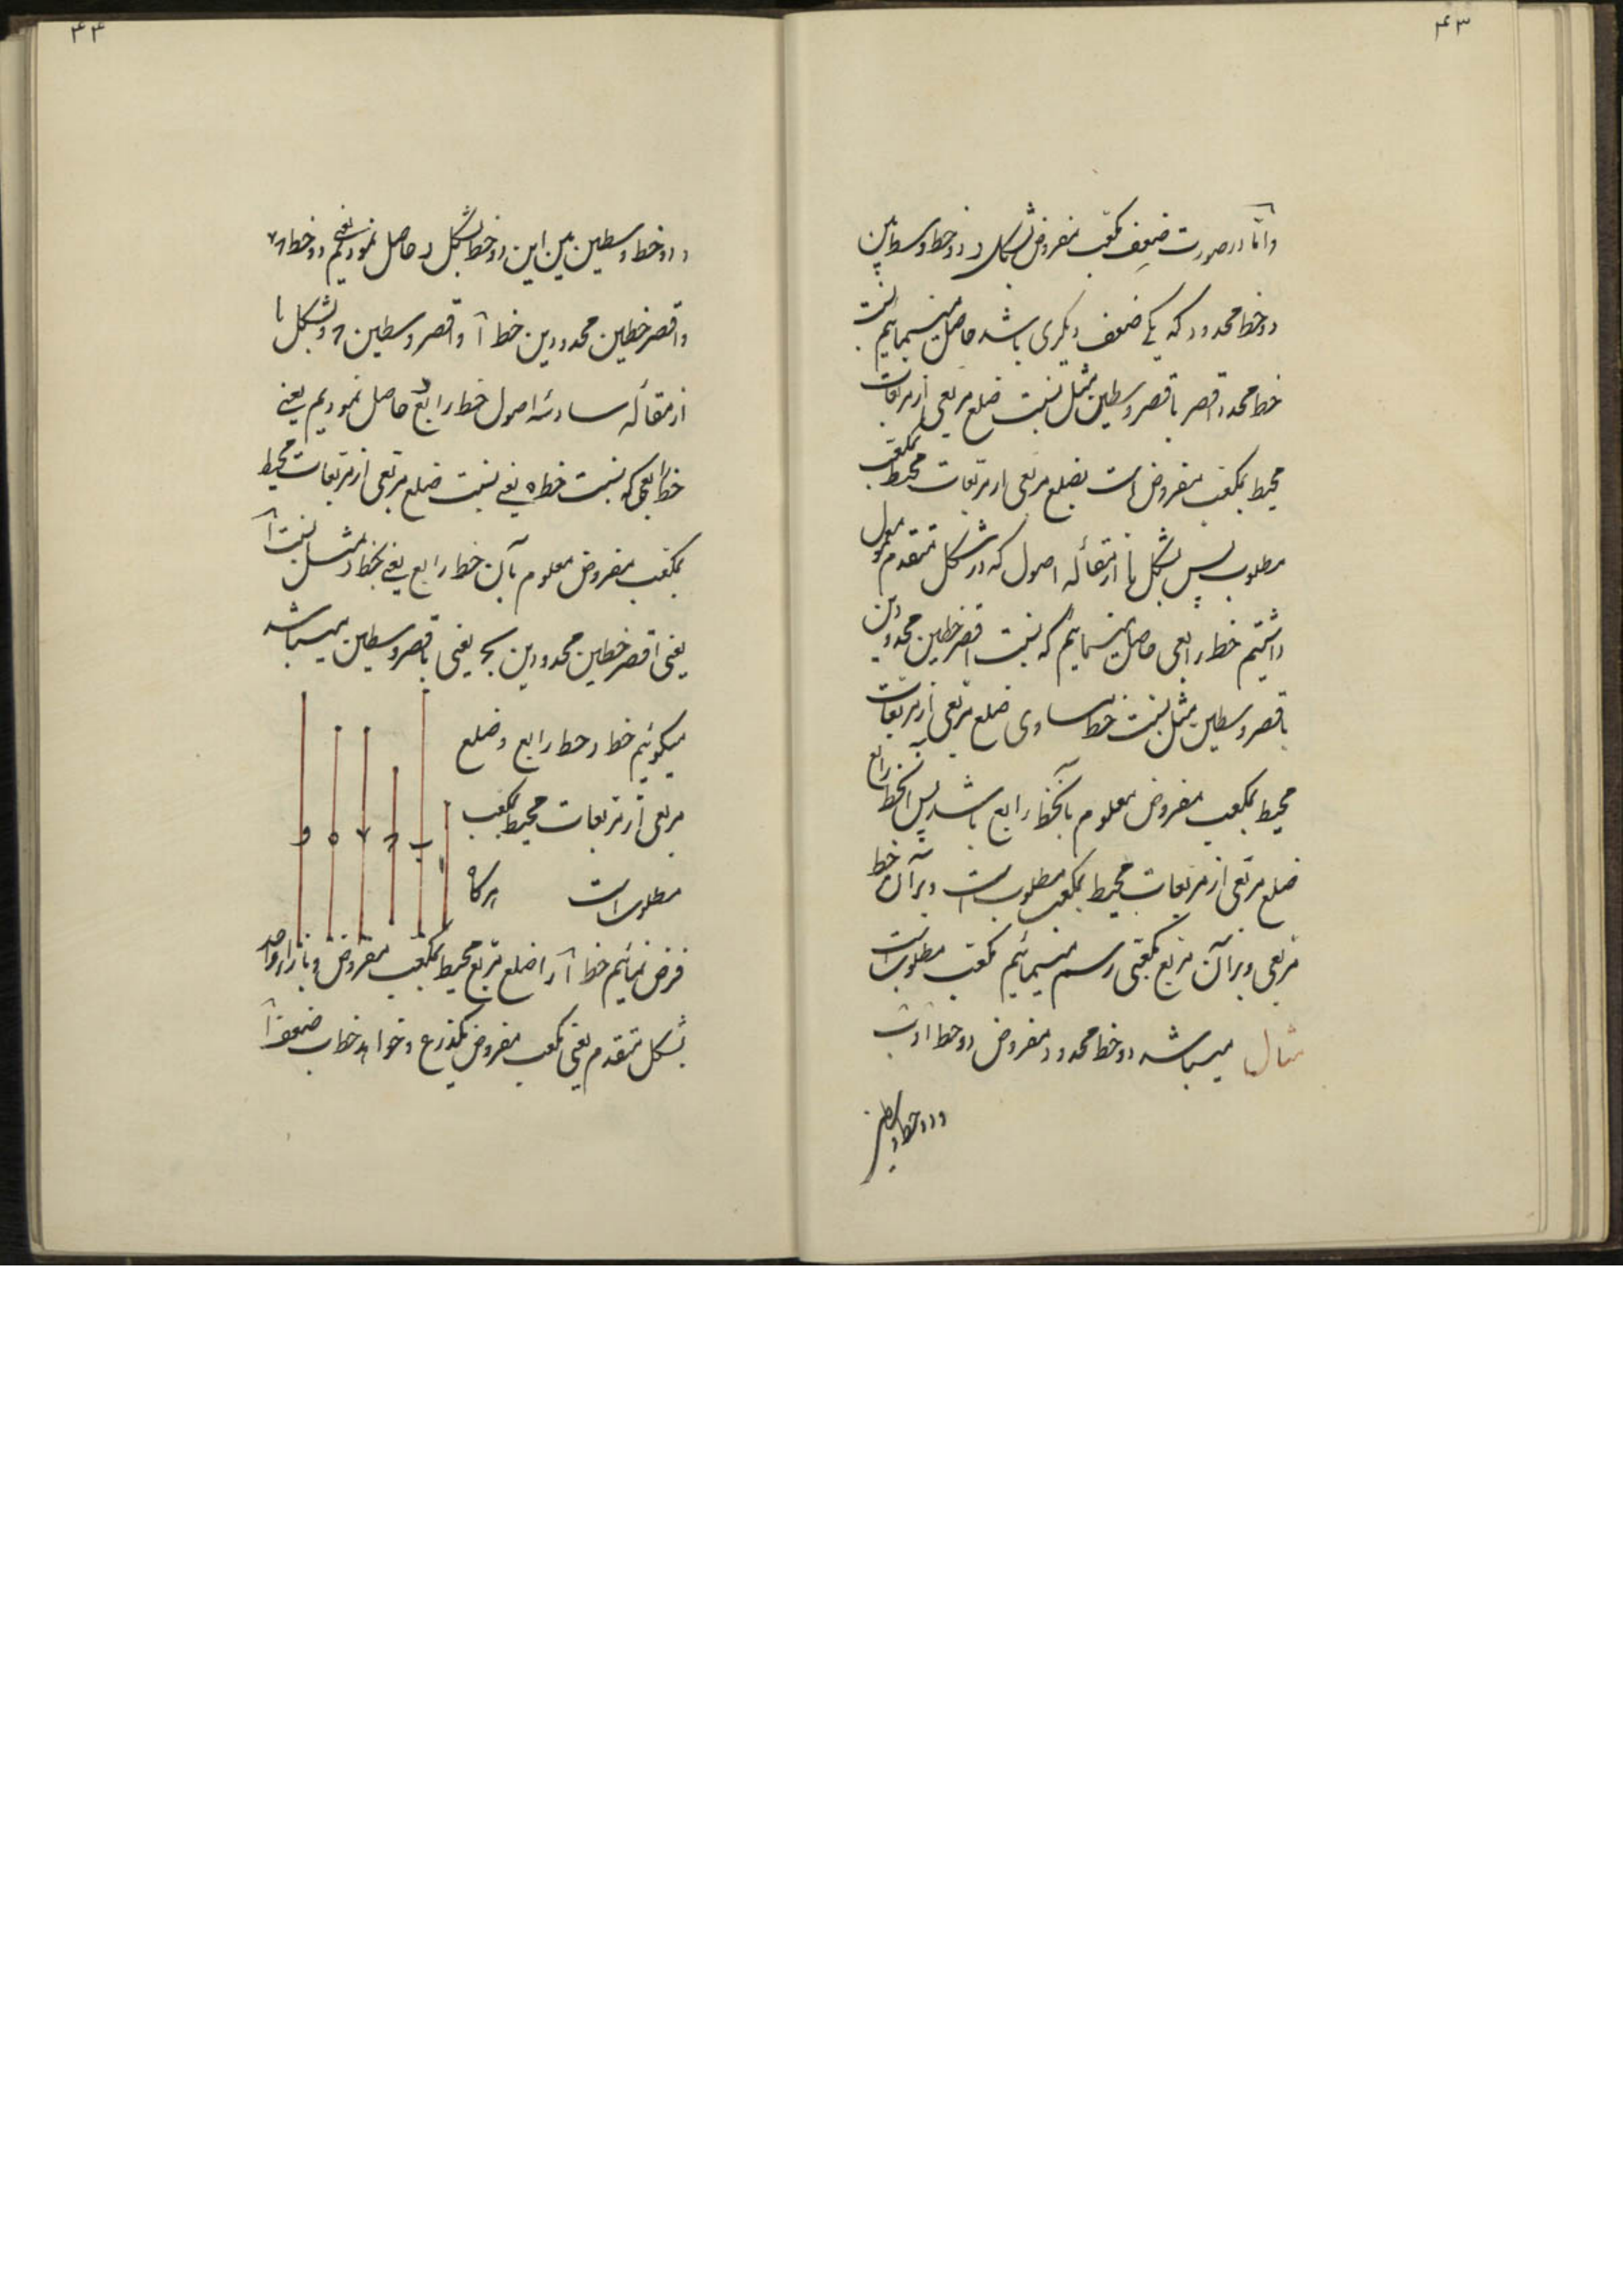 ۴۳
واما در صورت ضعف مکعب مفروض بشکل د دو خط وسط بین
دو خط محدود که یکی ضعف دیگری باشد حاصل مینماییم نسبت
خط محدود اقصر باقصر وسطین مثل نسبت ضلع مربعی از مربعات
محیط بمکعب مفروض است بضلع مربعی از مربعات محیط بمکعب
مطلوب پس بشکل یا از مقاله اصول که در شکل متقدم معمول
داشتیم خط رابعی حاصل مینماییم که نسبت اقصر خطین محدودین
باقصر وسطین مثل نسبت خط مساوی ضلع مربعی از مربعات
محیط بمکعب مفروض معلوم بآنخط رابع باشد پس آنخط رابع
ضلع مربعی از مربعات محیط بمکعب مطلوب است و بر آن خط
مربعی و بر آن مربع مکعبی رسم مینمائیم مکعب مطلوب است
مثال میباشد دو خط محدود مفروض دو خط ا و ب
و دو خط وسطین
۴۴
و دو خط وسطین بین این دو خط بشکل د حاصل نمودیم یعنی دو خط
واقصر خطین محدودین خط آ واقصر وسطین و بشکل یا
از مقاله سادسه اصول خط رابع حاصل نمودیم یعنی
خط رابعی که نسبت خط ه یعنی نسبت ضلع مربعی از مربعات محیط
بمکعب مفروض معلوم بآن خط رابع یعنی بخط و مثل نسبت آ
یعنی اقصر خطین محدودین بج یعنی باقصر وسطین میباشد
میگوئیم خط و خط رابع و ضلع
مربعی از مربعات محیط بمکعب
مطلوب است هرگاه
ا ب ه و
فرض نمائیم خط آ را ضلع مربع محیط بمکعب مفروض و بازاء واحد
بشکل متقدم یعنی مکعب مفروض یکذرع و خواهد خط ب ضعف آ